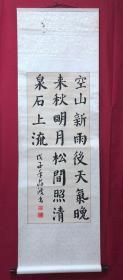 空山新雨後天氣晚
来秋明月松間照清
泉石上流
戊子年
書